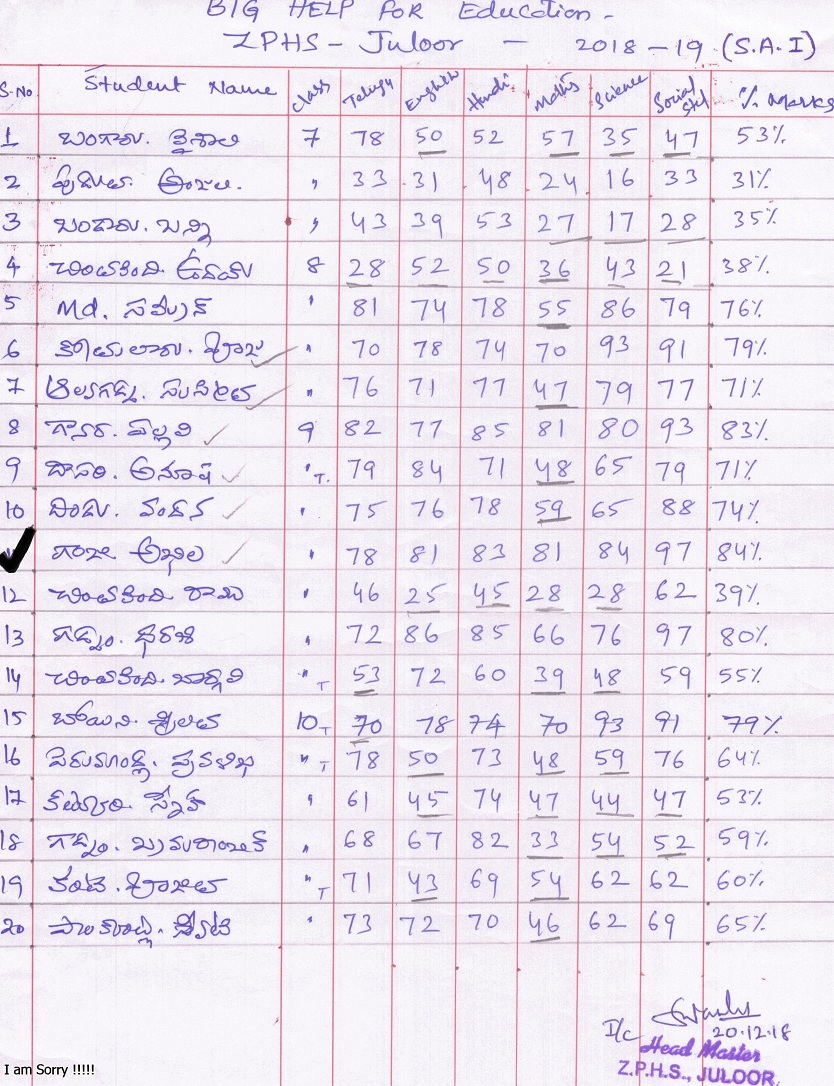 BIG HELP FOR Education -
ZPHS - Juloor - 2018-19 (S.A.I)
S.No Student Name Class Telugu English Hindi Maths Science Social Std % Marks
1 బంగారు. 7 78 50 52 57 35 47 53%
2 " 33 31 48 24 16 33 31%
3 బండారు. బన్ని " 43 39 53 27 17 28 35%
4 చింతకింది. ఉదయ్ 8 28 52 50 36 43 21 38%
5 Md. సమీర్ " 81 74 78 55 86 79 76%
6 " 70 78 74 70 93 91 79%
7 " 76 71 77 47 79 77 71%
8 పల్లవి 9 82 77 85 81 80 93 83%
9 దాసరి. అనూష " T. 79 84 71 48 65 79 71%
10 దిండు. వందన " 75 76 78 59 65 88 74%
గంజి అఖిల " 78 81 83 81 84 97 84%
12 చింతకింది. రాము " 46 25 45 28 28 62 39%
13 గడ్డం. ధరణి " 72 86 85 66 76 97 80%
14 చింతకింది. భార్గవి " T 53 72 60 39 48 59 55%
15 బోయిని. శ్రీలత 10 T 70 78 74 70 93 91 79%
16 పెరుమాండ్ల. ప్రవళిక " T 78 50 73 48 59 76 64%
17 " 61 45 74 47 44 47 53%
18 గడ్డం. " 68 67 82 33 54 52 59%
19 " T 71 43 69 54 62 62 60%
20 " 73 72 70 46 62 69 65%
I/c 20.12.18
Head Master
Z.P.H.S., JULOOR.
I am Sorry !!!!!